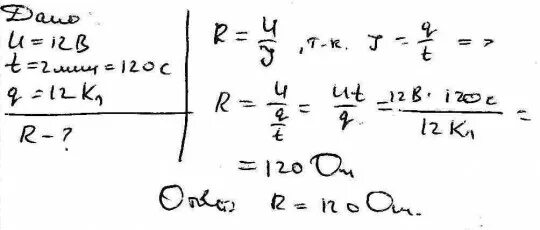 Дано
U = 12В
t = 2мин = 120с
q = 12 Кл
R - ?
R = U/J, т.к. J = q/t =>
R = U/(q/t) = Ut/q = 12В · 120с/12 Кл =
= 120 Ом
Ответ R = 120 Ом.